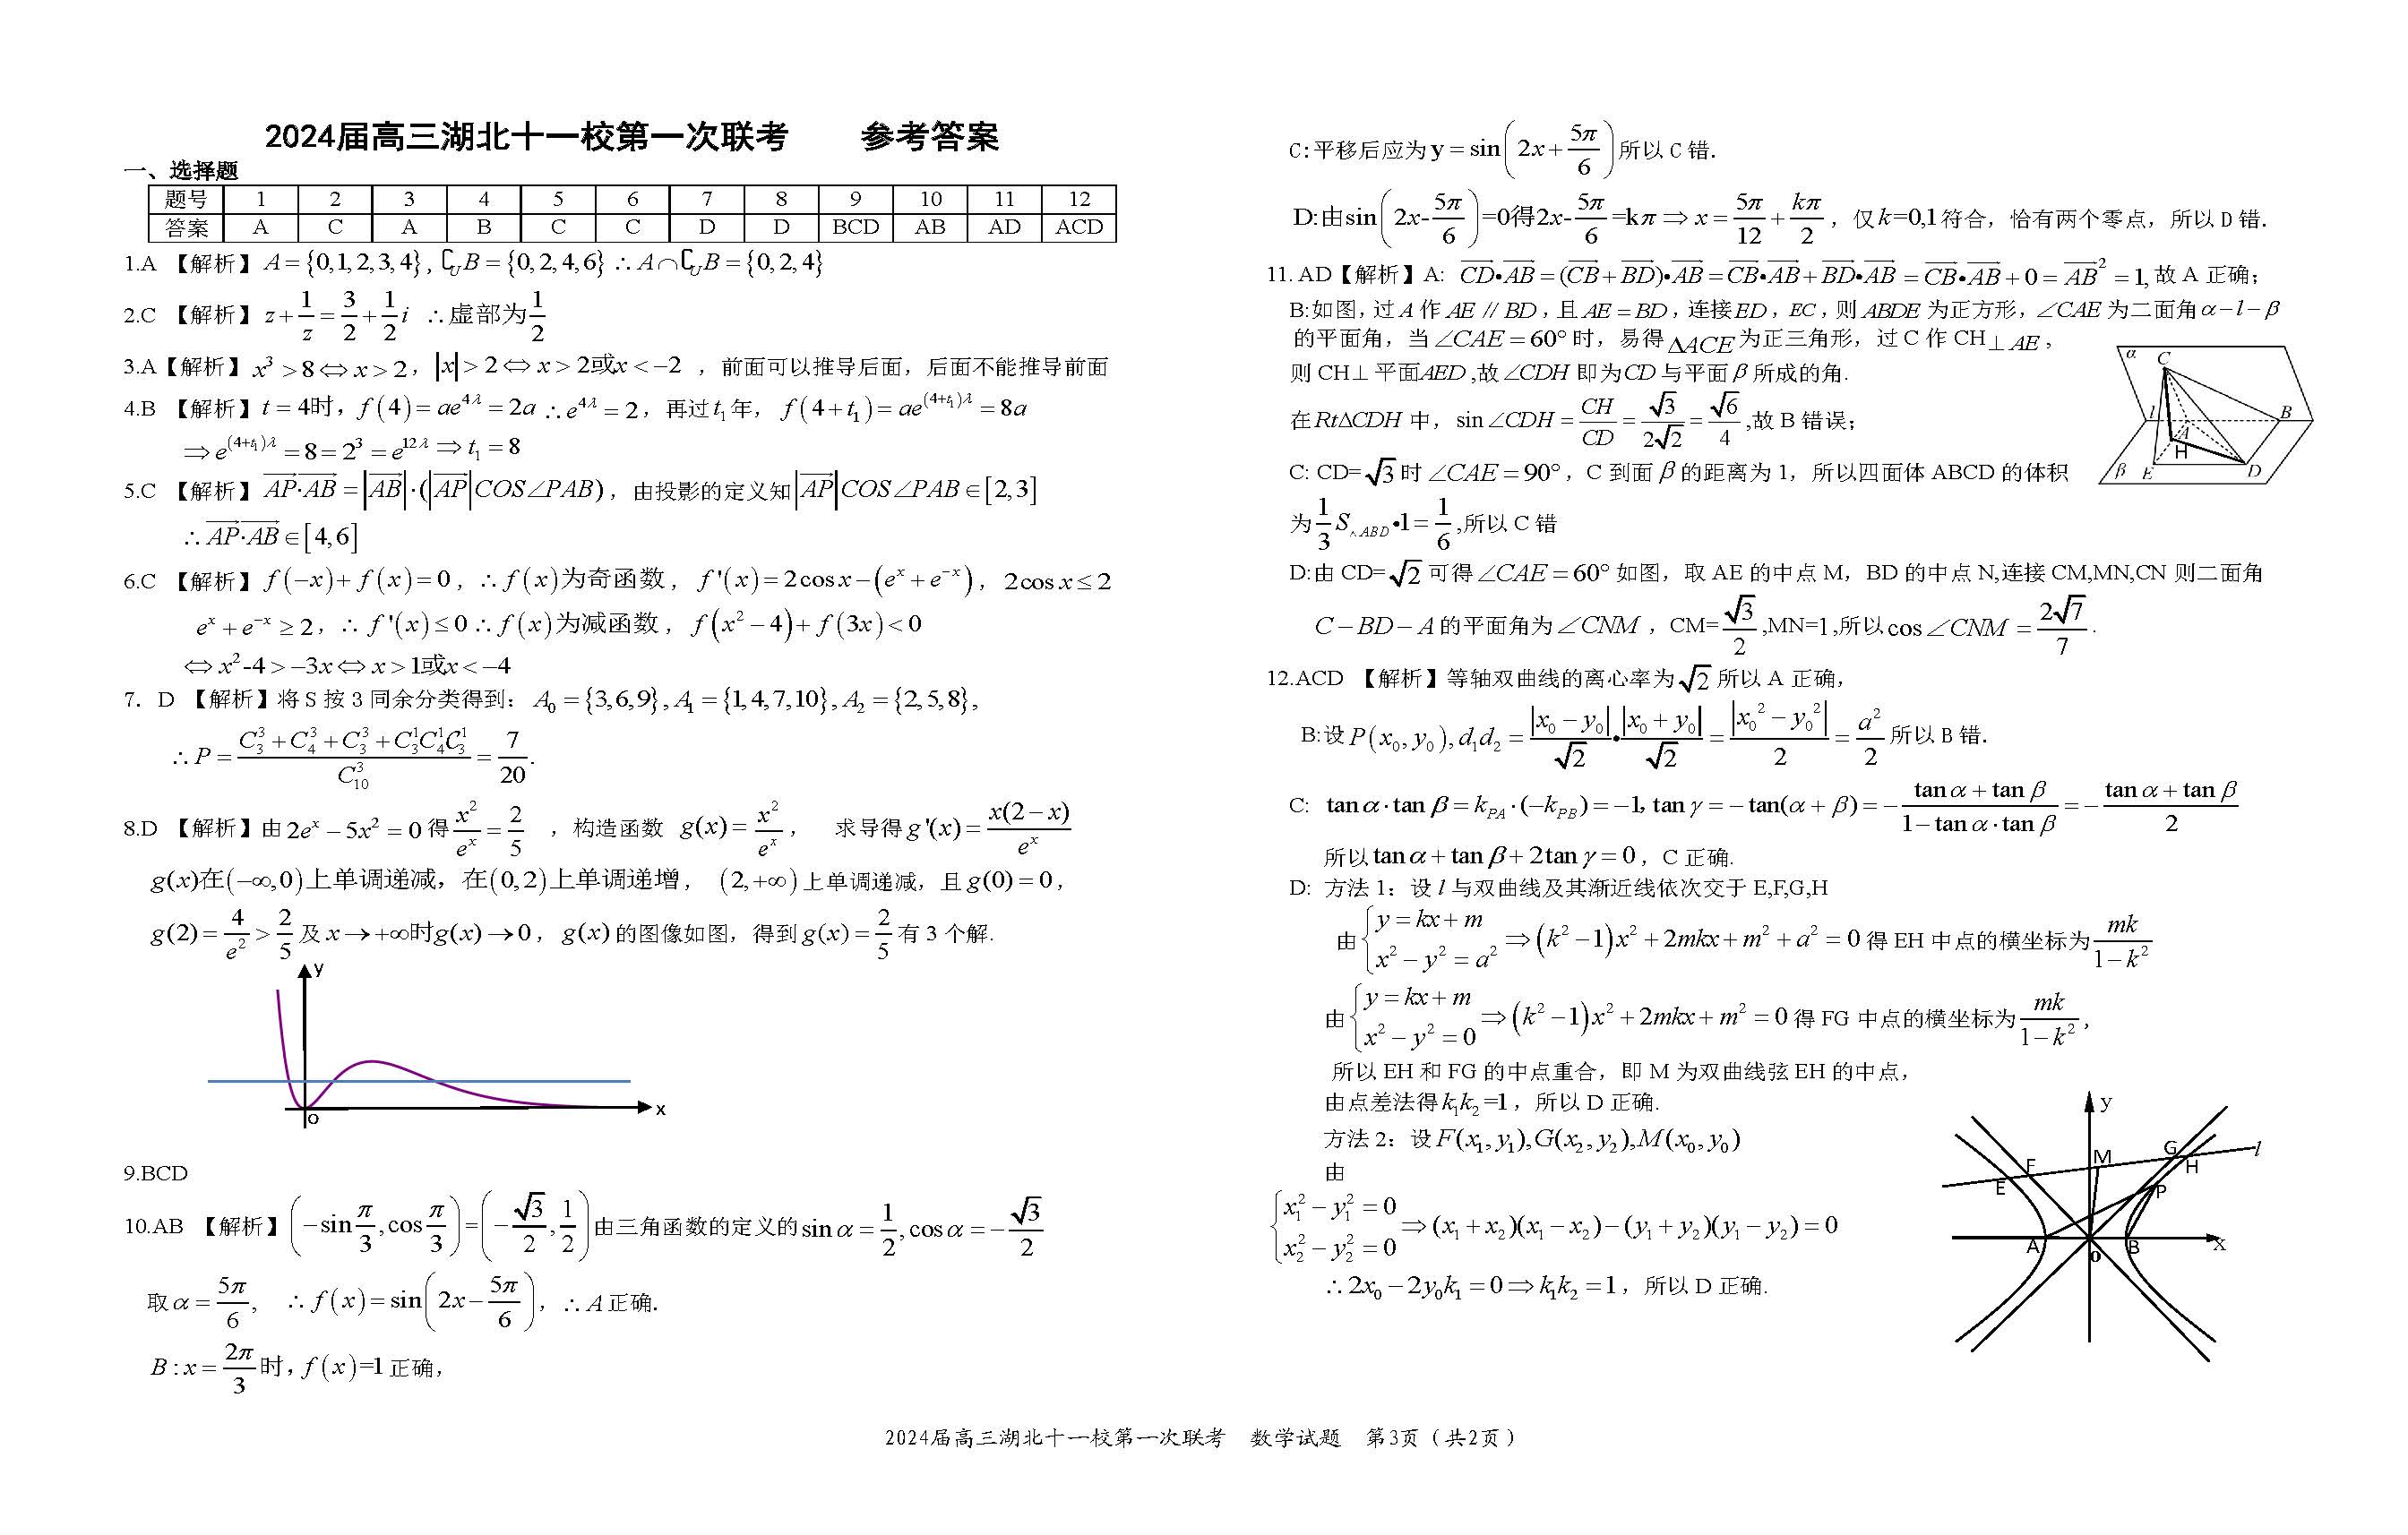 2024届高三湖北十一校第一次联考 参考答案
一、选择题
题号 1 2 3 4 5 6 7 8 9 10 11 12
答案 A C A B C C D D BCD AB AD ACD
1.A 【解析】A={0,1,2,3,4}, ∁_U B={0,2,4,6} ∴A∩∁_U B={0,2,4}
2.C 【解析】z+1/z=3/2+1/2 i ∴虚部为1/2
3.A【解析】x³>8⇔x>2，|x|>2⇔x>2或x<−2 ，前面可以推导后面，后面不能推导前面
4.B 【解析】t=4时，f(4)=ae^{4λ}=2a ∴e^{4λ}=2，再过t₁年，f(4+t₁)=ae^{(4+t₁)λ}=8a
⇒e^{(4+t₁)λ}=8=2³=e^{12λ}⇒t₁=8
5.C 【解析】\overrightarrow{AP}·\overrightarrow{AB}=|\overrightarrow{AB}|·(|\overrightarrow{AP}|COS∠PAB)，由投影的定义知|\overrightarrow{AP}|COS∠PAB∈[2,3]
∴\overrightarrow{AP}·\overrightarrow{AB}∈[4,6]
6.C 【解析】f(−x)+f(x)=0，∴f(x)为奇函数，f'(x)=2cosx−(e^x+e^{−x})，2cosx≤2
e^x+e^{−x}≥2，∴f'(x)≤0∴f(x)为减函数，f(x²−4)+f(3x)<0
⇔x²-4>−3x⇔x>1或x<−4
7. D 【解析】将S按3同余分类得到：A₀={3,6,9},A₁={1,4,7,10},A₂={2,5,8},
∴P=\frac{C_3^3+C_4^3+C_3^3+C_3^1C_4^1C_3^1}{C_{10}^3}=\frac{7}{20}.
8.D 【解析】由2e^x−5x²=0得\frac{x²}{e^x}=\frac{2}{5} ，构造函数 g(x)=\frac{x²}{e^x}， 求导得g'(x)=\frac{x(2−x)}{e^x}
g(x)在(−∞,0)上单调递减，在(0,2)上单调递增， (2,+∞)上单调递减，且g(0)=0，
g(2)=\frac{4}{e²}>\frac{2}{5}及x→+∞时g(x)→0，g(x)的图像如图，得到g(x)=\frac{2}{5}有3个解.
y
x
o
9.BCD
10.AB 【解析】(−sin\frac{π}{3},cos\frac{π}{3})=(−\frac{√3}{2},\frac{1}{2})由三角函数的定义的sinα=\frac{1}{2},cosα=−\frac{√3}{2}
取α=\frac{5π}{6}, ∴f(x)=sin(2x−\frac{5π}{6})，∴A正确.
B:x=\frac{2π}{3}时，f(x)=1正确，
C:平移后应为y=sin(2x+\frac{5π}{6})所以C错.
D:由sin(2x-\frac{5π}{6})=0得2x-\frac{5π}{6}=kπ⇒x=\frac{5π}{12}+\frac{kπ}{2}，仅k=0,1符合，恰有两个零点，所以D错.
11. AD【解析】A: \overrightarrow{CD}•\overrightarrow{AB}=(\overrightarrow{CB}+\overrightarrow{BD})•\overrightarrow{AB}=\overrightarrow{CB}•\overrightarrow{AB}+\overrightarrow{BD}•\overrightarrow{AB}=\overrightarrow{CB}•\overrightarrow{AB}+0=\overrightarrow{AB}²=1,故A正确；
B:如图,过A作AE∥BD,且AE=BD,连接ED，EC,则ABDE为正方形,∠CAE为二面角α−l−β
的平面角，当∠CAE=60°时，易得ΔACE为正三角形，过C作CH⊥AE，
则CH⊥平面AED,故∠CDH即为CD与平面β所成的角.
在RtΔCDH中，sin∠CDH=\frac{CH}{CD}=\frac{√3}{2√2}=\frac{√6}{4},故B错误；
C: CD=√3时∠CAE=90°，C到面β的距离为1，所以四面体ABCD的体积
为\frac{1}{3}S_{△ABD}•1=\frac{1}{6},所以C错
α C l B A H β E D
D:由CD=√2可得∠CAE=60°如图，取AE的中点M，BD的中点N,连接CM,MN,CN则二面角
C−BD−A的平面角为∠CNM，CM=\frac{√3}{2},MN=1,所以cos∠CNM=\frac{2√7}{7}.
12.ACD 【解析】等轴双曲线的离心率为√2所以A正确，
B:设P(x₀,y₀),d₁d₂=\frac{|x₀−y₀|}{√2}•\frac{|x₀+y₀|}{√2}=\frac{|x₀²−y₀²|}{2}=\frac{a²}{2}所以B错.
C: tanα·tanβ=k_{PA}·(−k_{PB})=−1，tanγ=−tan(α+β)=−\frac{tanα+tanβ}{1−tanα·tanβ}=−\frac{tanα+tanβ}{2}
所以tanα+tanβ+2tanγ=0，C正确.
D: 方法1：设l与双曲线及其渐近线依次交于E,F,G,H
由{y=kx+m, x²−y²=a²⇒(k²−1)x²+2mkx+m²+a²=0得EH中点的横坐标为\frac{mk}{1−k²}
由{y=kx+m, x²−y²=0⇒(k²−1)x²+2mkx+m²=0得FG中点的横坐标为\frac{mk}{1−k²},
所以EH和FG的中点重合，即M为双曲线弦EH的中点，
由点差法得k₁k₂=1，所以D正确.
方法2：设F(x₁,y₁),G(x₂,y₂),M(x₀,y₀)
由
{x₁²−y₁²=0, x₂²−y₂²=0⇒(x₁+x₂)(x₁−x₂)−(y₁+y₂)(y₁−y₂)=0
∴2x₀−2y₀k₁=0⇒k₁k₂=1，所以D正确.
y G l M H F E P A o B x
2024届高三湖北十一校第一次联考 数学试题 第3页（共2页）